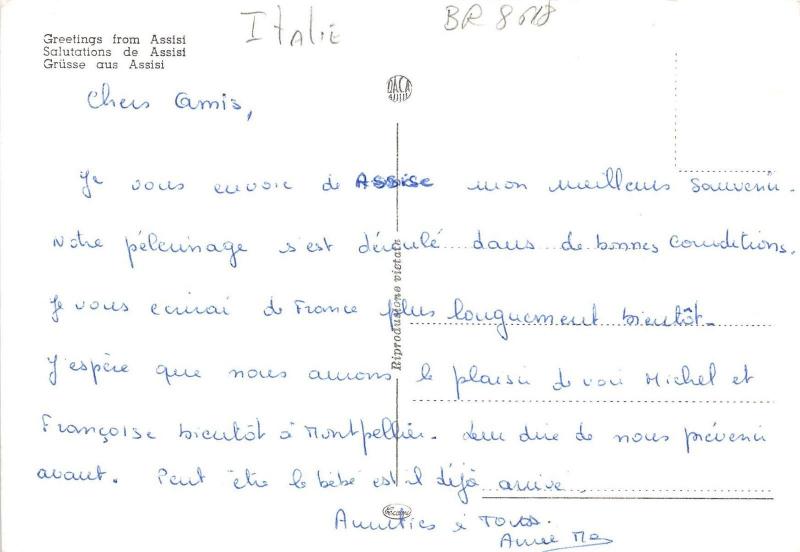 Italie BR 8618
Greetings from Assisi
Salutations de Assisi
Grüsse aus Assisi
DACA
Chers Amis,
Je vous envoie de Assise mon meilleurs souvenir.
Notre pélerinage s'est déroulé dans de bonnes conditions.
Je vous ecrirai de France plus longuement bientôt.
J'espère que nous aurons le plaisir de voir Michel et
Françoise bientôt à Montpellier. Leur dire de nous prévenir
avant. Peut être le bébé est il déjà arrivé.
Riproduzione vietata
Amitiés à Tous.